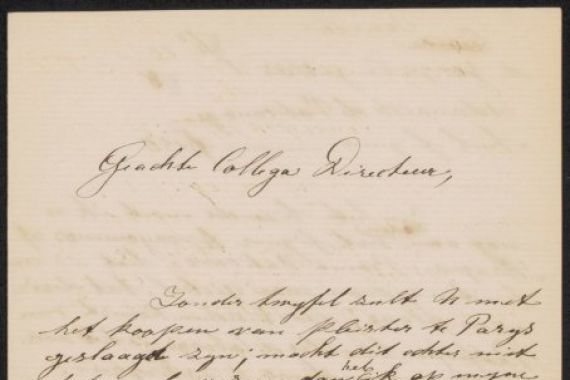 Geachte Collega Directeur,
Zonder twyfel zult U met
het koopen van pleister te Parys
geslaagd zyn; mocht dit echter niet
het
dan ik op myne